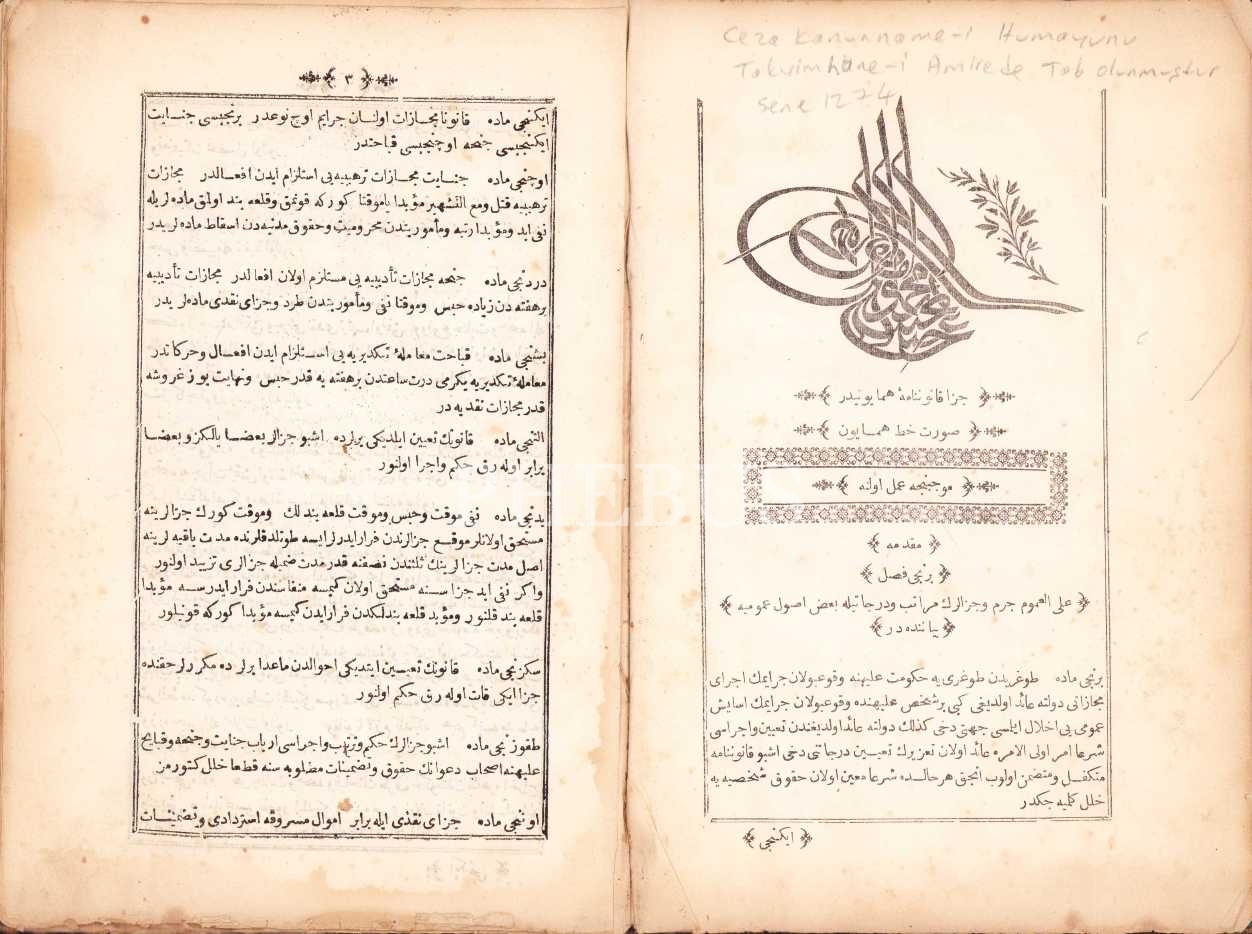 Ceza Kanunname-i Humayunu
Takvimhane-i Amirede Tab olunmuştur
Sene 1274
جزا قانوننامهٔ همایونیدر
صورت خط همایون
موجبنجه عمل اولنه
مقدمه
برنجی فصل
علی العموم جرم وجزالرك مراتب ودرجاتیله بعض اصول عمومیه
بیاننده در
برنجی ماده طوغریدن طوغری یه حکومت علیهنه وقوعبولان جرایمك اجرای
مجازاتی دولته عائد اولدیغی کبی برشخص علیهنده وقوعبولان جرایمك اسایش
عمومی یی اخلال ایلمسی جهتی دخی کذلك دولته عائد اولدیغندن تعیین واجراسی
شرعا امر اولی الامره عائد اولان تعزیرك تعیین درجاتنی دخی اشبو قانوننامه
متکفل ومتضمن اولوب انجق هر حالده شرعا معین اولان حقوق شخصیه یه
خلل کلمیه جکدر
ایکنجی
٣
ایکنجی ماده قانونا مجازات اولنان جرایم اوچ نوعدر برنجیسی جنایت
ایکنجیسی جنحه اوچنجیسی قباحتدر
اوچنجی ماده جنایت مجازات ترهیبیه یی استلزام ایدن افعالدر مجازات
ترهیبیه قتل ومع التشهیر مؤبدا یاموقتا کورکه قونمق وقلعه بند اولمق ماده لریله
نفی ابد ومؤبدا رتبه ومأموریتدن محرومیت وحقوق مدنیه دن اسقاط ماده لریدر
دردنجی ماده جنحه مجازات تأدیبیه یی مستلزم اولان افعالدر مجازات تأدیبیه
برهفته دن زیاده حبس وموقتا نفی ومأموریتدن طرد وجزای نقدی ماده لریدر
بشنجی ماده قباحت معاملهٔ تکدیریه یی استلزام ایدن افعال وحرکاتدر
معاملهٔ تکدیریه یکرمی درت ساعتدن برهفته یه قدر حبس ونهایت یوز غروشه
قدر مجازات نقدیه در
التنجی ماده قانونك تعیین ایلدیکی یرلرده اشبو جزالر بعضا یالکز وبعضا
برابر اوله رق حکم واجرا اولنور
یدنجی ماده نفی موقت وحبس موقت وموقت قلعه بندلك وموقت کورك جزالرینه
مستحق اولانلر موقع جزالرندن فرار ایدرلر ایسه طوتلدقلرنده مدت باقیه لرینه
اصل مدت جزالرینك ثلثندن نصفنه قدر مدت ضمیله جزالری تزیید اولنور
واکر نفی ابد جزاسنه مستحق اولان کیمسه منفاسندن فرار ایدرسه مؤبدا
قلعه بند قلنور ومؤبد قلعه بندلکدن فرار ایدن کیمسه مؤبدا کورکه قونیلور
سکزنجی ماده قانونك تعیین ایتدیکی احوالدن ماعدا یرلرده مکررلر حقنده
جزا ایکی قات اوله رق حکم اولنور
طقوزنجی ماده اشبو جزالرك حکم وترتب واجراسی ارباب جنایت وجنحه وقبایح
علیهنه اصحاب دعوانك حقوق وتضمینات مطلوبه سنه قطعا خلل کتورمز
اوننجی ماده جزای نقدی ایله برابر اموال مسروقه استردادی وتضمینات